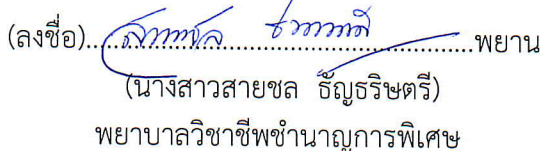 (ลงชื่อ)....................................................พยาน
(นางสาวสายชล ธัญธริษตรี)
พยาบาลวิชาชีพชำนาญการพิเศษ